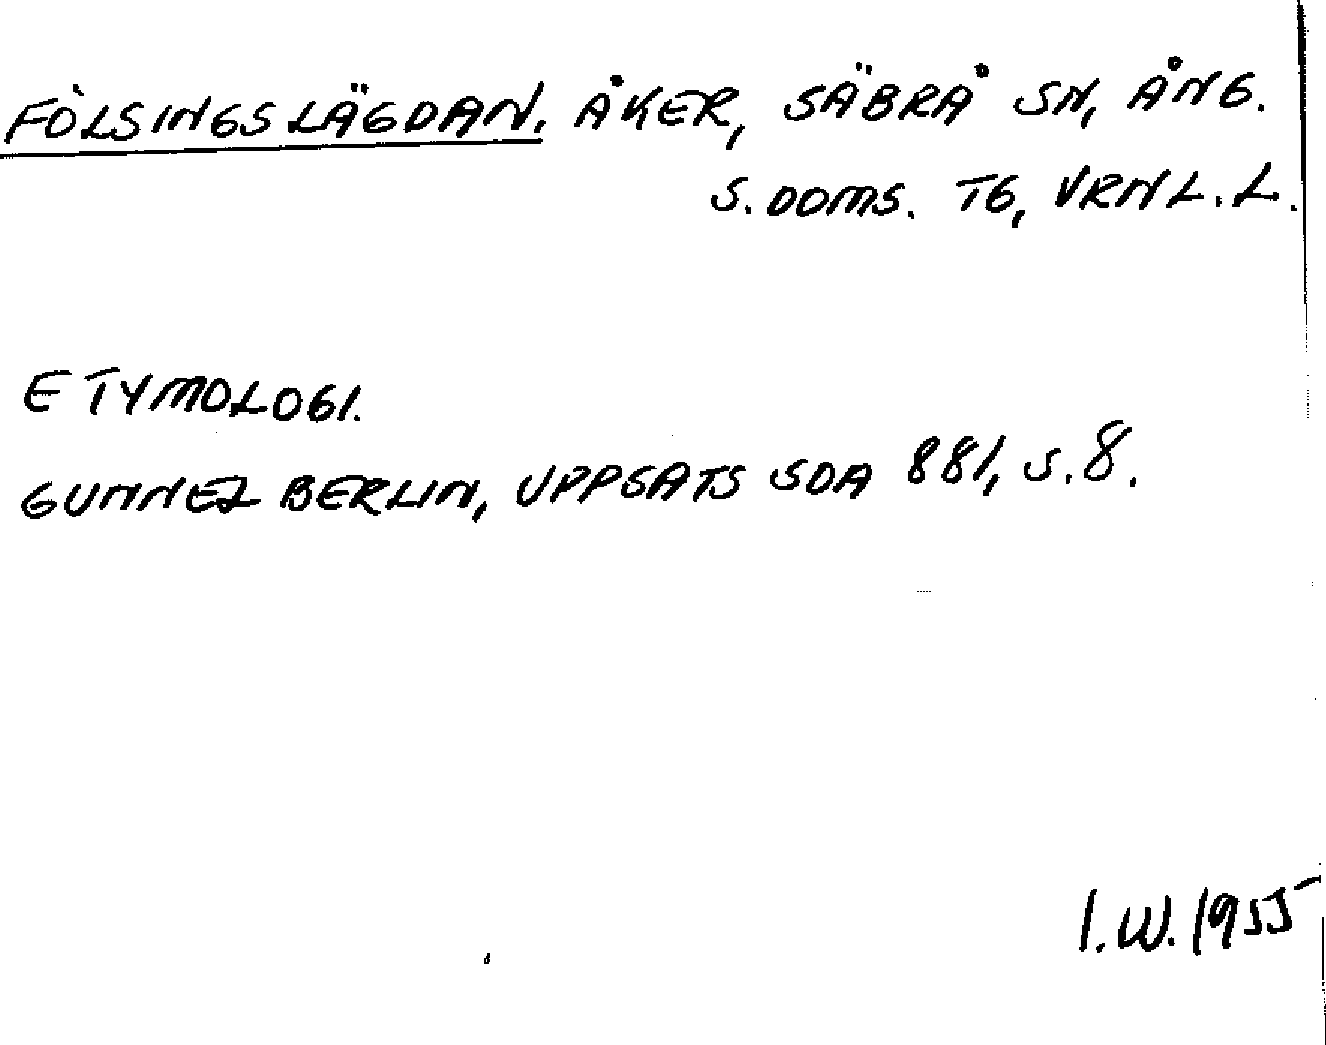 FÖLSINGSLÄGDAN. ÅKER, SÄBRÅ SN, ÅNG.
S. DOMS. TG, VRNL. L.
ETYMOLOGI.
GUNNEL BERLIN, UPPSATS SOA 881, S. 8.
I. W. 1955